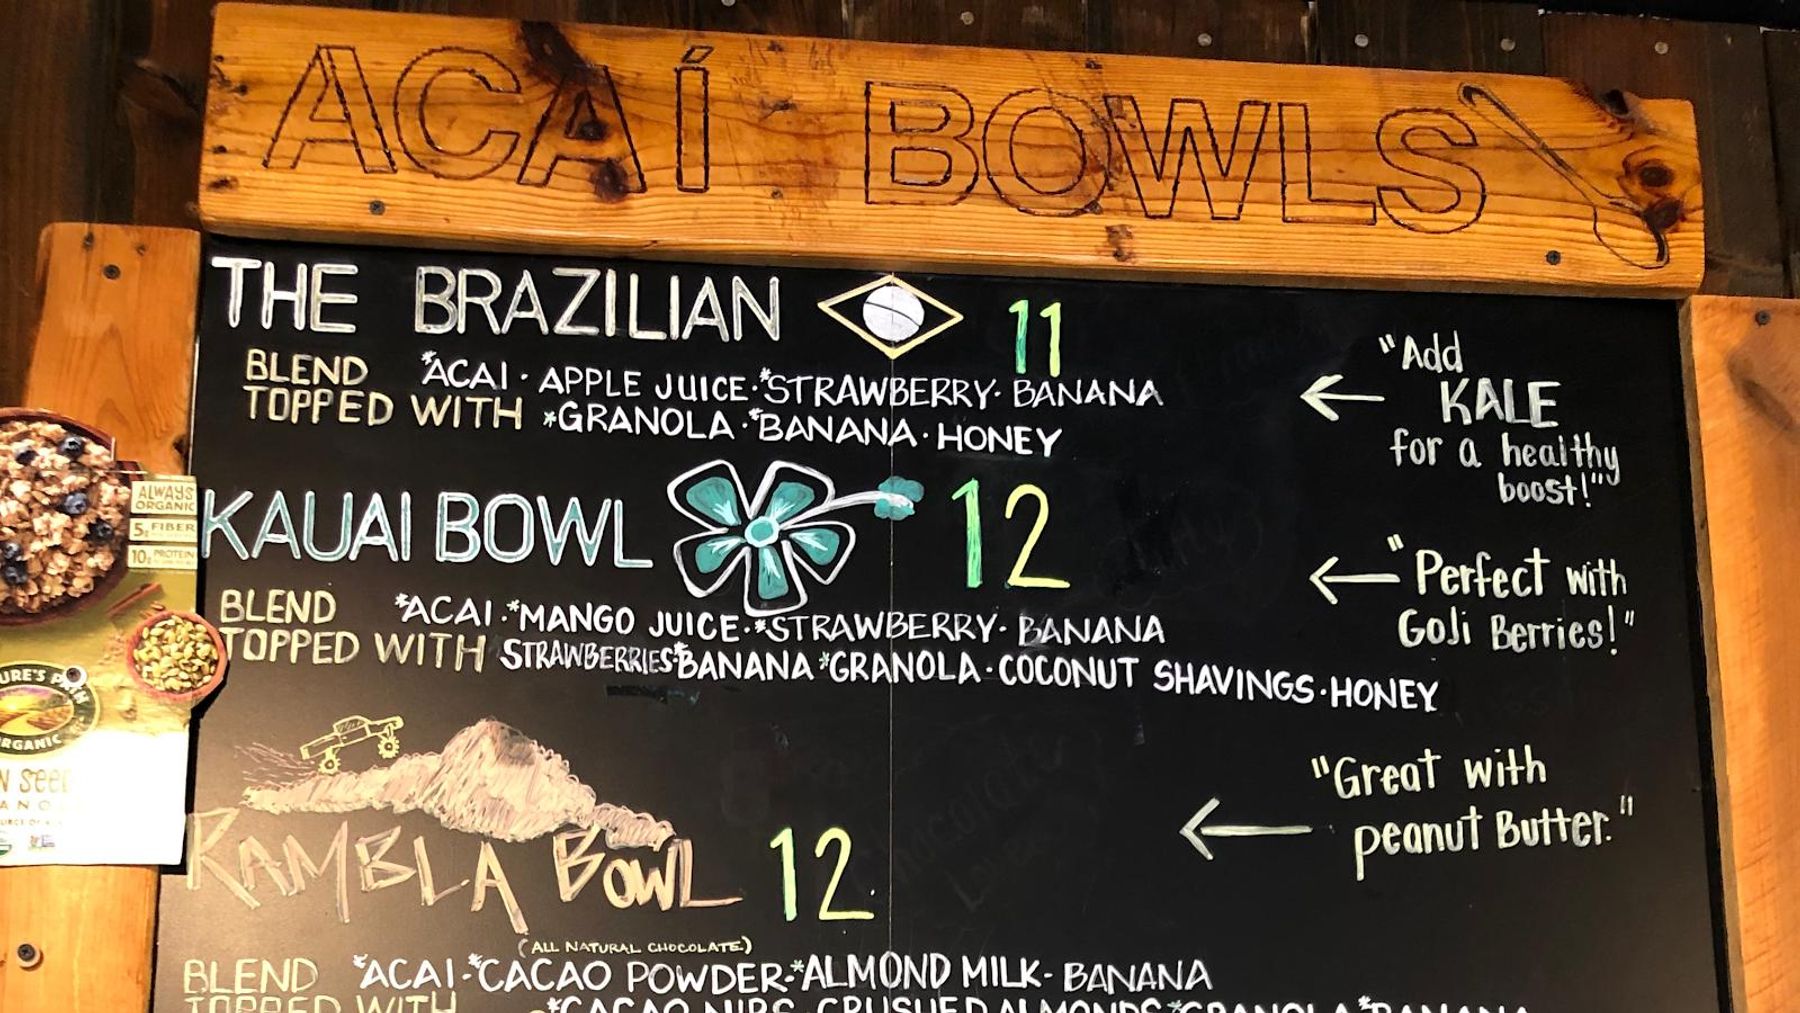 ACAÍ BOWLS
THE BRAZILIAN 11
BLEND *ACAI · APPLE JUICE · *STRAWBERRY · BANANA
TOPPED WITH *GRANOLA · *BANANA · HONEY
"Add
KALE
for a healthy
boost!"
KAUAI BOWL 12
BLEND *ACAI · *MANGO JUICE · *STRAWBERRY · BANANA
TOPPED WITH STRAWBERRIES *BANANA *GRANOLA · COCONUT SHAVINGS · HONEY
"Perfect with
Goji Berries!"
RAMBLA BOWL 12
"Great with
peanut Butter."
(ALL NATURAL CHOCOLATE)
BLEND *ACAI · *CACAO POWDER · *ALMOND MILK · BANANA
TOPPED WITH *CACAO NIBS · CRUSHED ALMONDS *GRANOLA *BANANA
ALWAYS
ORGANIC
5g FIBER
10g PROTEIN